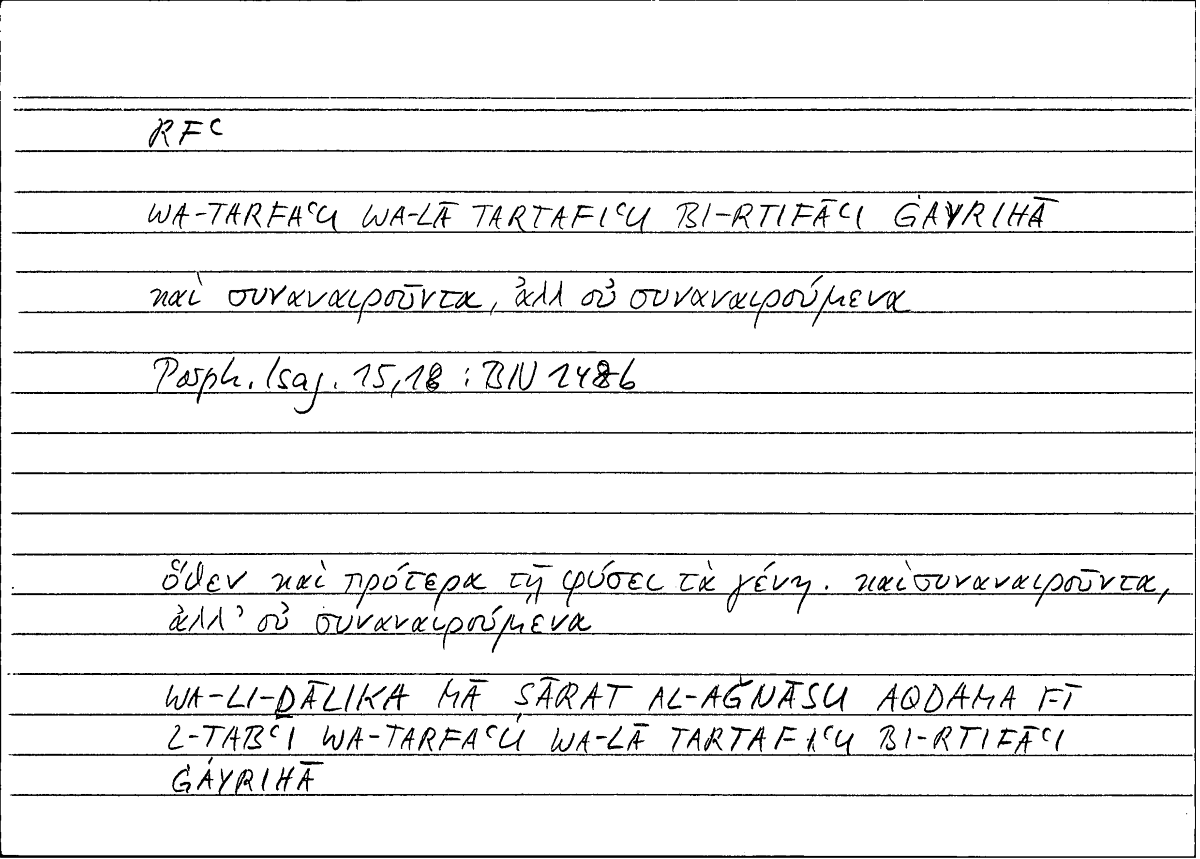 RFᶜ
WA-TARFAᶜU WA-LĀ TARTAFIᶜU BI-RTIFĀᶜI ĠAYRIHĀ
καὶ συναναιροῦντα, ἀλλ οὐ συναναιρούμενα
Porph. Isag. 15,18 : BN 148b
ὅθεν καὶ πρότερα τῇ φύσει τὰ γένη. καὶ συναναιροῦντα,
ἀλλ' οὐ συναναιρούμενα
WA-LI-ḎĀLIKA MĀ ṢĀRAT AL-AǦNĀSU AQDAMA FĪ
L-ṬABᶜI WA-TARFAᶜU WA-LĀ TARTAFIᶜU BI-RTIFĀᶜI
ĠAYRIHĀ